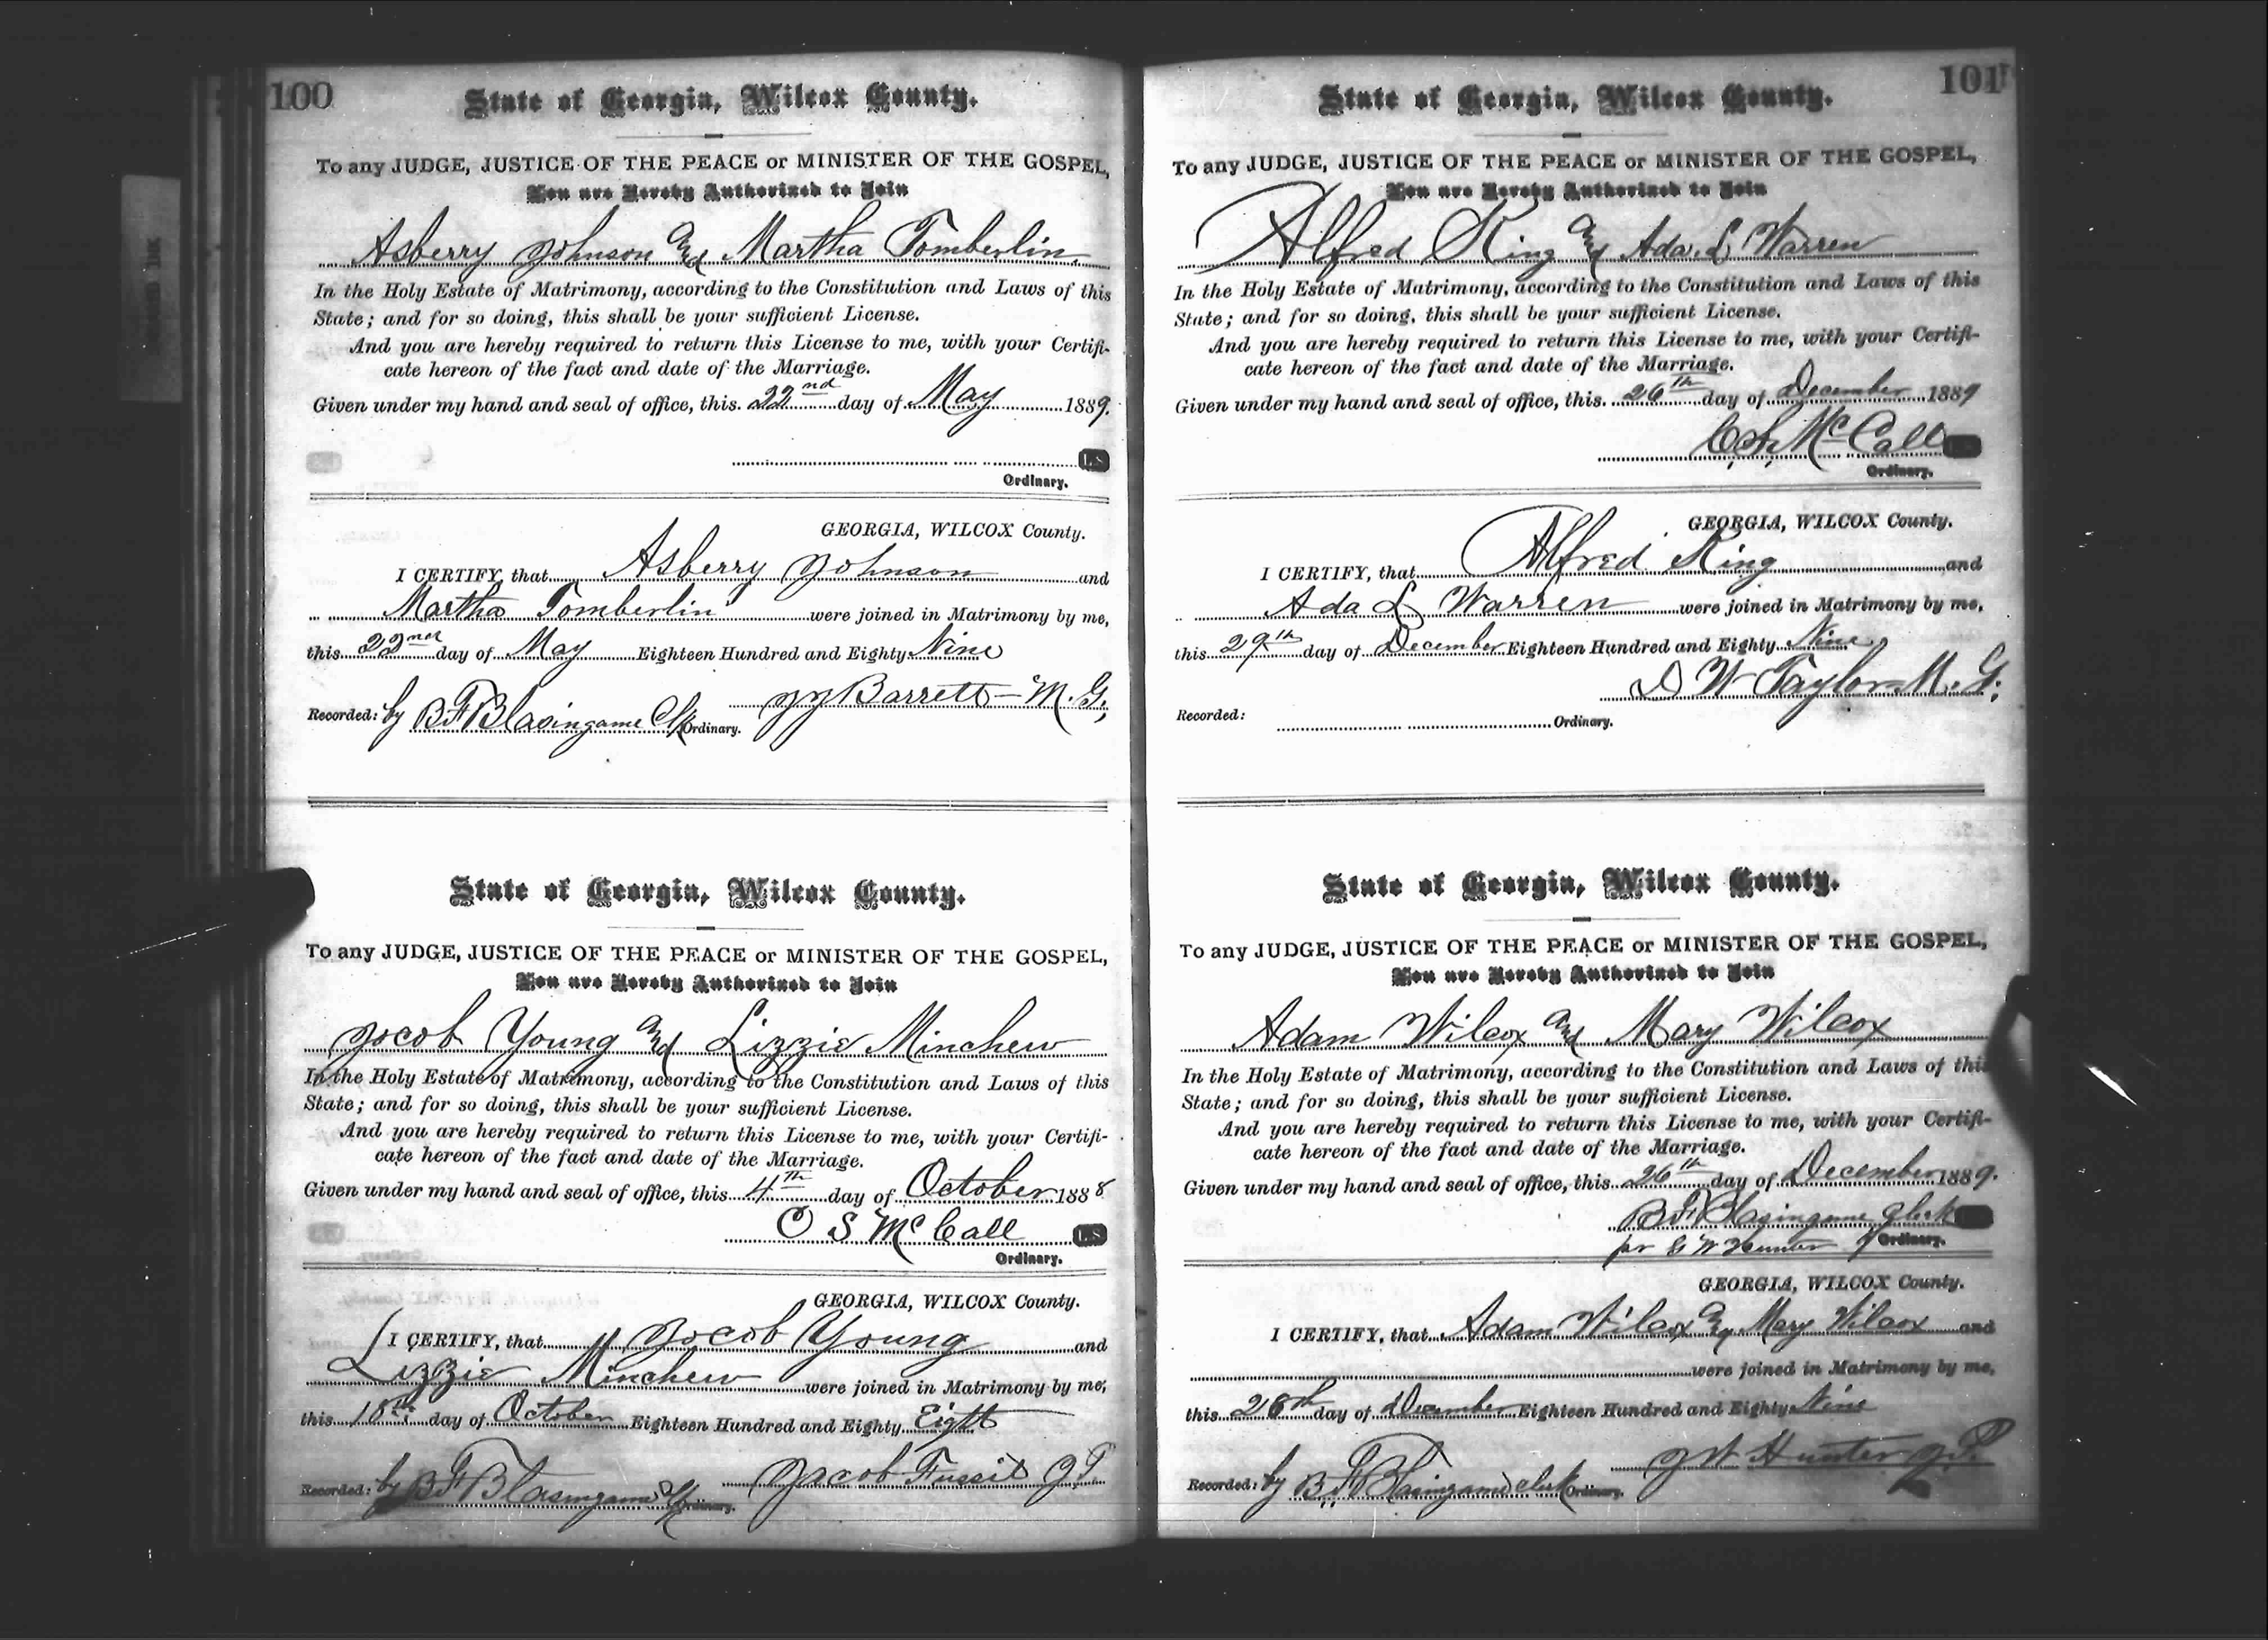 100
State of Georgia, Wilcox County.
To any JUDGE, JUSTICE OF THE PEACE or MINISTER OF THE GOSPEL,
You are Hereby Authorized to Join
Asberry Johnson and Martha Tomberlin
In the Holy Estate of Matrimony, according to the Constitution and Laws of this
State; and for so doing, this shall be your sufficient License.
And you are hereby required to return this License to me, with your Certifi-
cate hereon of the fact and date of the Marriage.
Given under my hand and seal of office, this 22nd day of May 1889.
LS
Ordinary.
GEORGIA, WILCOX County.
I CERTIFY, that Asberry Johnson and
Martha Tomberlin were joined in Matrimony by me,
this 22nd day of May Eighteen Hundred and Eighty Nine
Barrett - M. G.
Recorded: by B F Blasingame Clk Ordinary.
State of Georgia, Wilcox County.
To any JUDGE, JUSTICE OF THE PEACE or MINISTER OF THE GOSPEL,
You are Hereby Authorized to Join
Jocob Young and Lizzie Minchew
In the Holy Estate of Matrimony, according to the Constitution and Laws of this
State; and for so doing, this shall be your sufficient License.
And you are hereby required to return this License to me, with your Certifi-
cate hereon of the fact and date of the Marriage.
Given under my hand and seal of office, this 4th day of October 1888
C S McCall LS
Ordinary.
GEORGIA, WILCOX County.
I CERTIFY, that Jocob Young and
Lizzie Minchew were joined in Matrimony by me,
this 18th day of October Eighteen Hundred and Eighty Eight
Jacob Fussil J.P.
Recorded: by B F Blasingame Clk Ordinary.
101
State of Georgia, Wilcox County.
To any JUDGE, JUSTICE OF THE PEACE or MINISTER OF THE GOSPEL,
You are Hereby Authorized to Join
Alfred King and Ada. L Warren
In the Holy Estate of Matrimony, according to the Constitution and Laws of this
State; and for so doing, this shall be your sufficient License.
And you are hereby required to return this License to me, with your Certifi-
cate hereon of the fact and date of the Marriage.
Given under my hand and seal of office, this 26th day of December 1889
C. S. McCall LS
Ordinary.
GEORGIA, WILCOX County.
I CERTIFY, that Alfred King and
Ada L Warren were joined in Matrimony by me,
this 29th day of December Eighteen Hundred and Eighty Nine
D W Taylor M. G.
Recorded: Ordinary.
State of Georgia, Wilcox County.
To any JUDGE, JUSTICE OF THE PEACE or MINISTER OF THE GOSPEL,
You are Hereby Authorized to Join
Adam Wilcox and Mary Wilcox
In the Holy Estate of Matrimony, according to the Constitution and Laws of this
State; and for so doing, this shall be your sufficient License.
And you are hereby required to return this License to me, with your Certifi-
cate hereon of the fact and date of the Marriage.
Given under my hand and seal of office, this 26th day of December 1889.
B F Blasingame Clerk
for G W Hunter Ordinary.
GEORGIA, WILCOX County.
I CERTIFY, that Adam Wilcox and Mary Wilcox and
were joined in Matrimony by me,
this 26th day of December Eighteen Hundred and Eighty Nine
Hunter J.P.
Recorded: by B F Blasingame Clerk Ordinary.